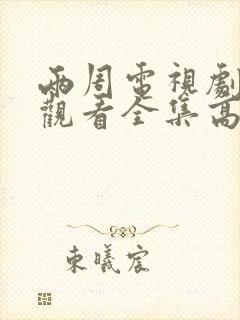 兩周電視劇
觀看全集高
東曦宸